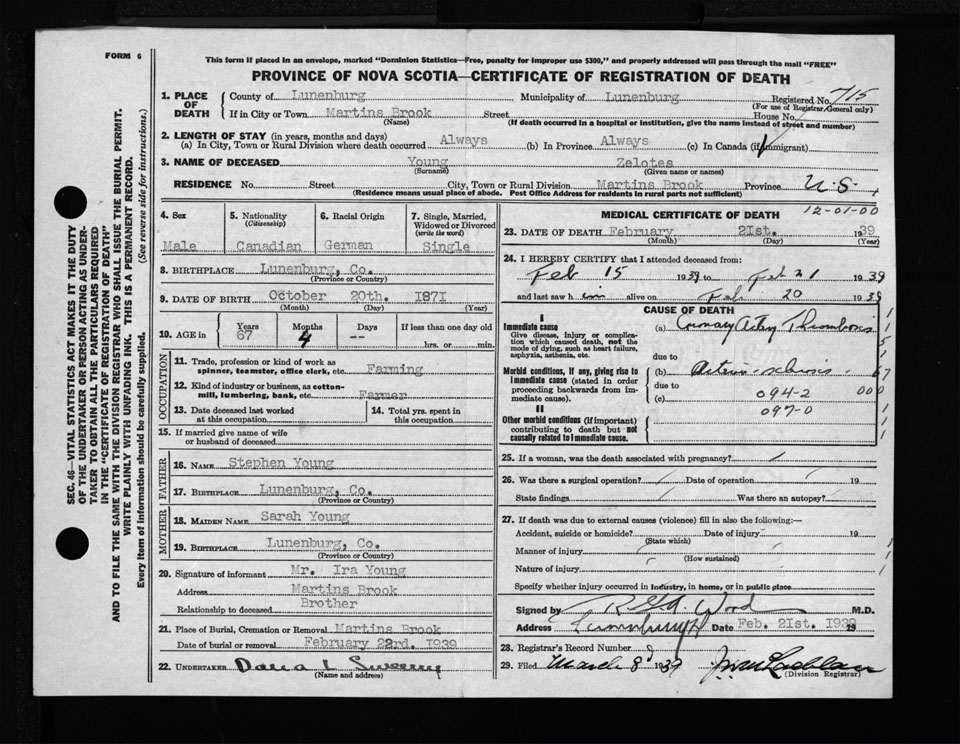 FORM 6
This form if placed in an envelope, marked "Dominion Statistics—Free, penalty for improper use $300," and properly addressed will pass through the mail "FREE"
PROVINCE OF NOVA SCOTIA—CERTIFICATE OF REGISTRATION OF DEATH
SEC. 46—VITAL STATISTICS ACT MAKES IT THE DUTY
OF THE UNDERTAKER OR PERSON ACTING AS UNDER-
TAKER TO OBTAIN ALL THE PARTICULARS REQUIRED
IN THE "CERTIFICATE OF REGISTRATION OF DEATH"
AND TO FILE THE SAME WITH THE DIVISION REGISTRAR WHO SHALL ISSUE THE BURIAL PERMIT.
WRITE PLAINLY WITH UNFADING INK. THIS IS A PERMANENT RECORD.
Every item of information should be carefully supplied. (See reverse side for instructions.)
1. PLACE OF DEATH
County of Lunenburg Municipality of Lunenburg Registered No. 715
(For use of Registrar General only)
If in City or Town Martins Brook Street House No.
(Name) (If death occurred in a hospital or institution, give the name instead of street and number)
2. LENGTH OF STAY (in years, months and days)
(a) In City, Town or Rural Division where death occurred Always (b) In Province Always (c) In Canada (if immigrant)
3. NAME OF DECEASED Young Zelotes
(Surname) (Given name or names)
RESIDENCE No. Street City, Town or Rural Division Martins Brook Province N.S.
(Residence means usual place of abode. Post Office Address for residents in rural parts not sufficient)
4. Sex Male
5. Nationality (Citizenship) Canadian
6. Racial Origin German
7. Single, Married, Widowed or Divorced (write the word) Single
8. BIRTHPLACE Lunenburg, Co.
(Province or Country)
9. DATE OF BIRTH October 20th. 1871
(Month) (Day) (Year)
10. AGE in Years 67 Months 4 Days -- If less than one day old hrs. or min.
OCCUPATION
11. Trade, profession or kind of work as
spinner, teamster, office clerk, etc. Farming
12. Kind of industry or business, as cotton-
mill, lumbering, bank, etc. Farmer
13. Date deceased last worked at this occupation
14. Total yrs. spent in this occupation
15. If married give name of wife
or husband of deceased
FATHER
16. NAME Stephen Young
17. BIRTHPLACE Lunenburg, Co.
(Province or Country)
MOTHER
18. MAIDEN NAME Sarah Young
19. BIRTHPLACE Lunenburg, Co.
(Province or Country)
20. Signature of informant Mr. Ira Young
Address Martins Brook
Relationship to deceased Brother
21. Place of Burial, Cremation or Removal Martins Brook
Date of burial or removal February 22rd. 1939
22. UNDERTAKER
(Name and address)
MEDICAL CERTIFICATE OF DEATH 12-01-00
23. DATE OF DEATH February 21st. 1939
(Month) (Day) (Year)
24. I HEREBY CERTIFY that I attended deceased from:
Feb 15 1939 to Feb 21 1939
and last saw him alive on Feb 20 1939
CAUSE OF DEATH
I
Immediate cause
Give disease, injury or complica-
tion which caused death, not the
mode of dying, such as heart failure,
asphyxia, asthenia, etc.
(a) Coronary Artery Thrombosis
due to
Morbid conditions, if any, giving rise to
immediate cause (stated in order
proceeding backwards from im-
mediate cause).
(b) Arterio-sclerosis
due to
(c) 094-2
097-0
II
Other morbid conditions (if important)
contributing to death but not
causally related to immediate cause.
25. If a woman, was the death associated with pregnancy?
26. Was there a surgical operation? Date of operation 19
State findings Was there an autopsy?
27. If death was due to external causes (violence) fill in also the following:—
Accident, suicide or homicide? Date of injury 19
(State which)
Manner of injury
(How sustained)
Nature of injury
Specify whether injury occurred in industry, in home, or in public place
Signed by Wood M.D.
Address Lunenburg Date Feb. 21st. 1939 19
28. Registrar's Record Number
29. Filed March 8 1939
(Division Registrar)